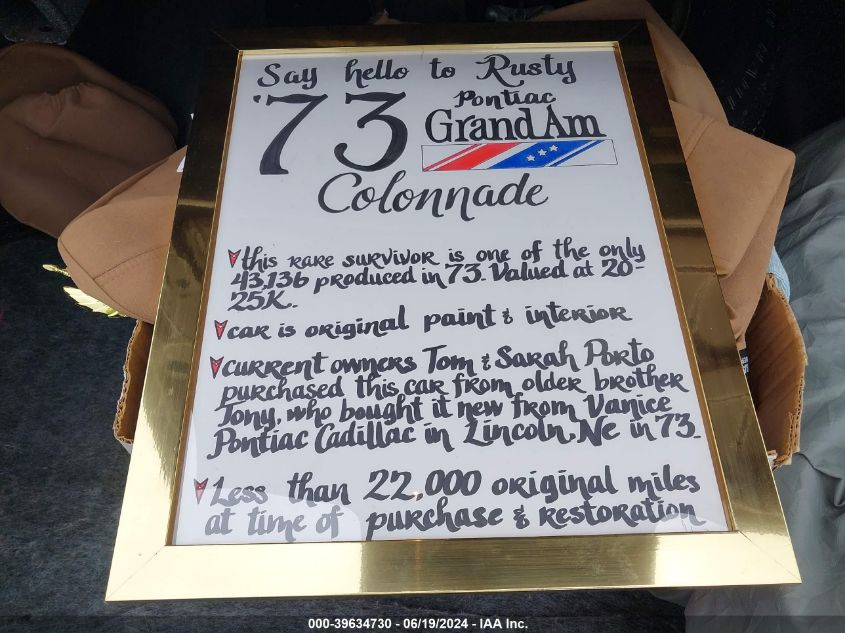 Say hello to Rusty
'73 Pontiac
Grand Am
Colonnade
this rare survivor is one of the only
43,136 produced in 73. Valued at 20-
25K.
car is original paint & interior
current owners Tom & Sarah Porto
purchased this car from older brother
Tony, who bought it new from Vanice
Pontiac Cadillac in Lincoln, Ne in 73.
Less than 22,000 original miles
at time of purchase & restoration
000-39634730 - 06/19/2024 - IAA Inc.